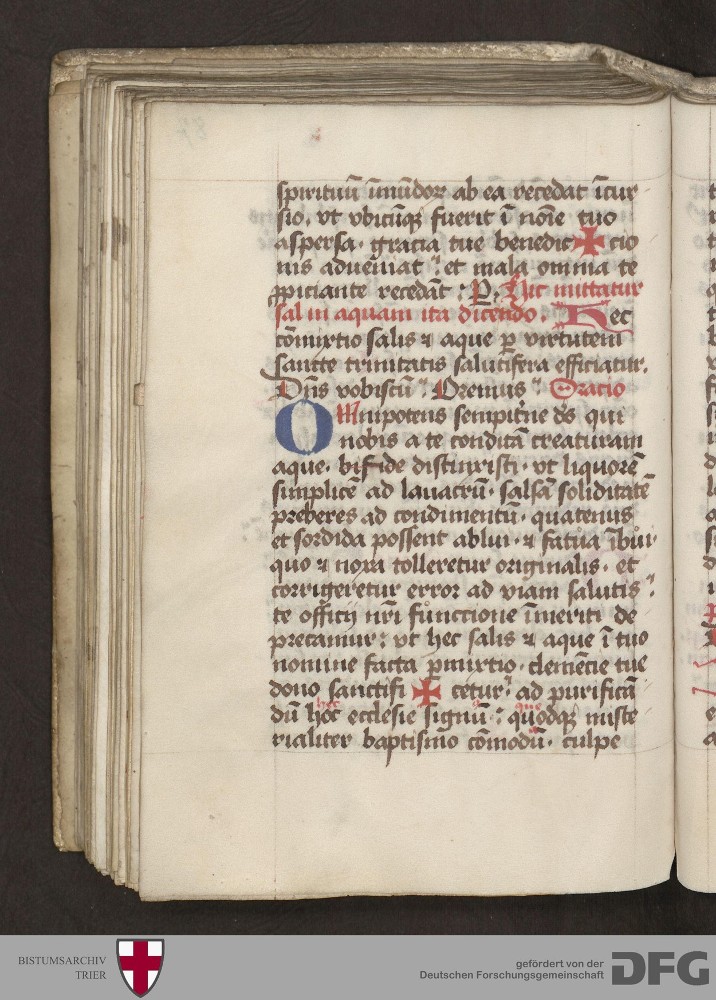 spirituū ī̄mūdoꝝ ab ea recedat ītur
sio. vt vbicūqꝫ fuerit ī noīe tuo
aspersa. gracia tue benedic ✠ cio
nis adueniat et mala omnia te
ꝓpiciante recedāt P. Hic mittatur
sal in aquam ita dicendo. Hec
cōmixtio salis ⁊ aque ꝑ virtutem
sancte trinitatis salutifera efficiatur.
Dn̄s vobiscū Oremus Oracio
OMnipotens sempit̄ne ds̄ qui
nobis a te conditā creaturam
aque. bifide distinxisti. vt liquorē
simplicē ad lauacrū. salsā soliditatē
preberes ad condimentū. quatenus
et sordida possent ablui. ⁊ fatua
quo ⁊ noxa tolleretur originalis. et
corrigeretur error ad viam salutis
te officij nr̄i functione īmeriti de
precamur: vt hec salis ⁊ aque ī tuo
nomine facta ꝑmixtio. clemēcie tue
dono sanctifi ✠ cetur ad purificā
dū hec ecclesie signū: quodqꝫ que miste
rialiter baptismo cōmodū. culpe
BISTUMSARCHIV
TRIER
gefördert von der
Deutschen Forschungsgemeinschaft
DFG